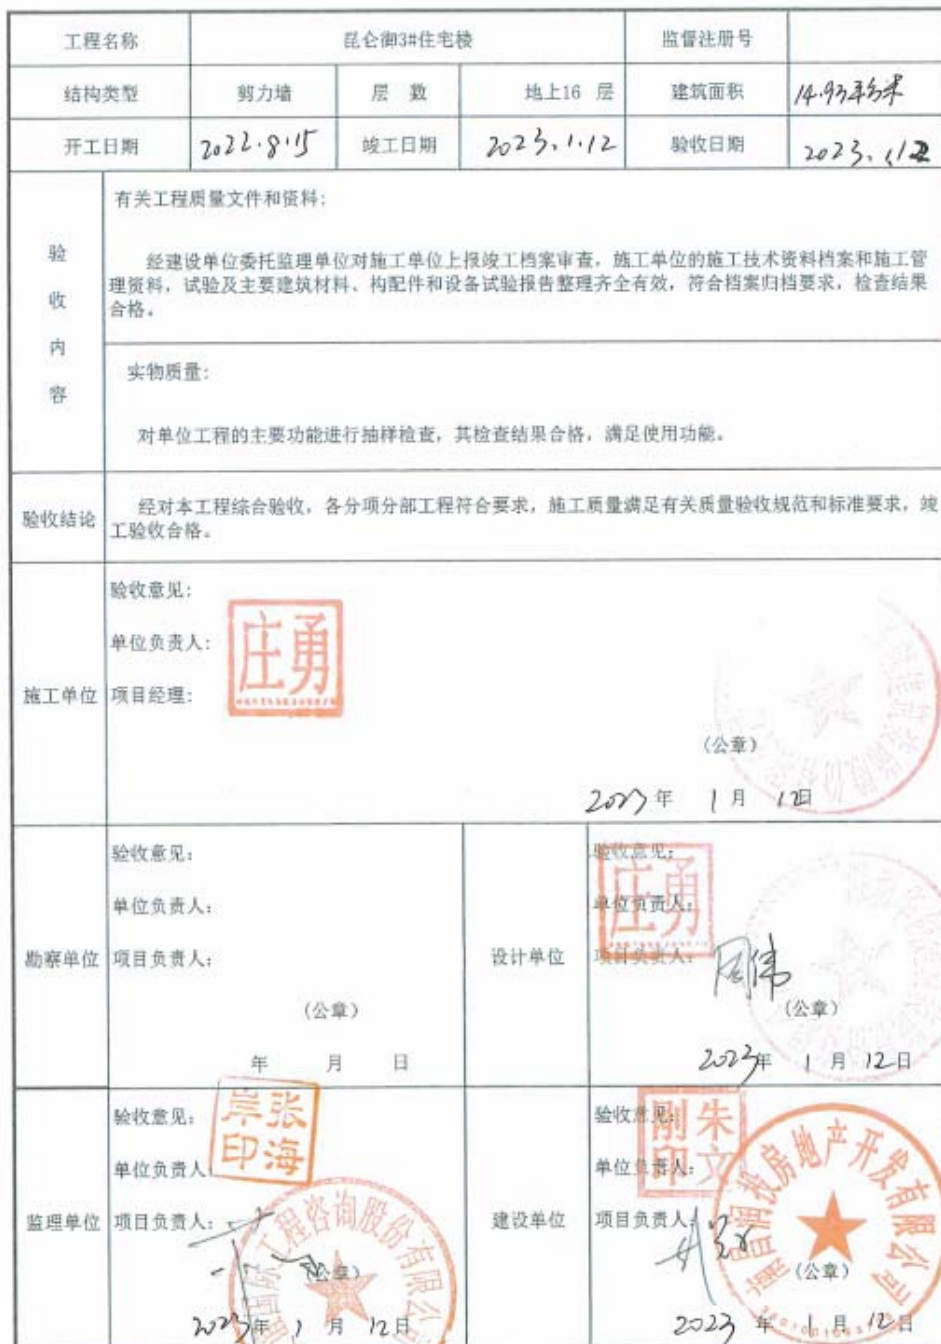 工程名称 昆仑御3#住宅楼 监督注册号
结构类型 剪力墙 层 数 地上16 层 建筑面积 14.93平方米
开工日期 2022.8.15 竣工日期 2023.1.12 验收日期 2023.1.12
验收内容
有关工程质量文件和资料:
经建设单位委托监理单位对施工单位上报竣工档案审查，施工单位的施工技术资料档案和施工管
理资料，试验及主要建筑材料、构配件和设备试验报告整理齐全有效，符合档案归档要求，检查结果
合格。
实物质量:
对单位工程的主要功能进行抽样检查，其检查结果合格，满足使用功能。
验收结论
经对本工程综合验收，各分项分部工程符合要求，施工质量满足有关质量验收规范和标准要求，竣
工验收合格。
施工单位
验收意见:
单位负责人:
庄勇
项目经理:
(公章)
2023年 1月 12日
勘察单位
验收意见:
单位负责人:
项目负责人:
(公章)
年 月 日
设计单位
验收意见:
庄勇
单位负责人:
项目负责人: 周伟
(公章)
2023年 1月 12日
监理单位
验收意见:
张海岸印
单位负责人:
项目负责人:
国际工程咨询股份有限公
(公章)
2023年 1月 12日
建设单位
验收意见:
朱文刚印
单位负责人:
项目负责人:
房地产开发有限公司
(公章)
2023年 1月 12日